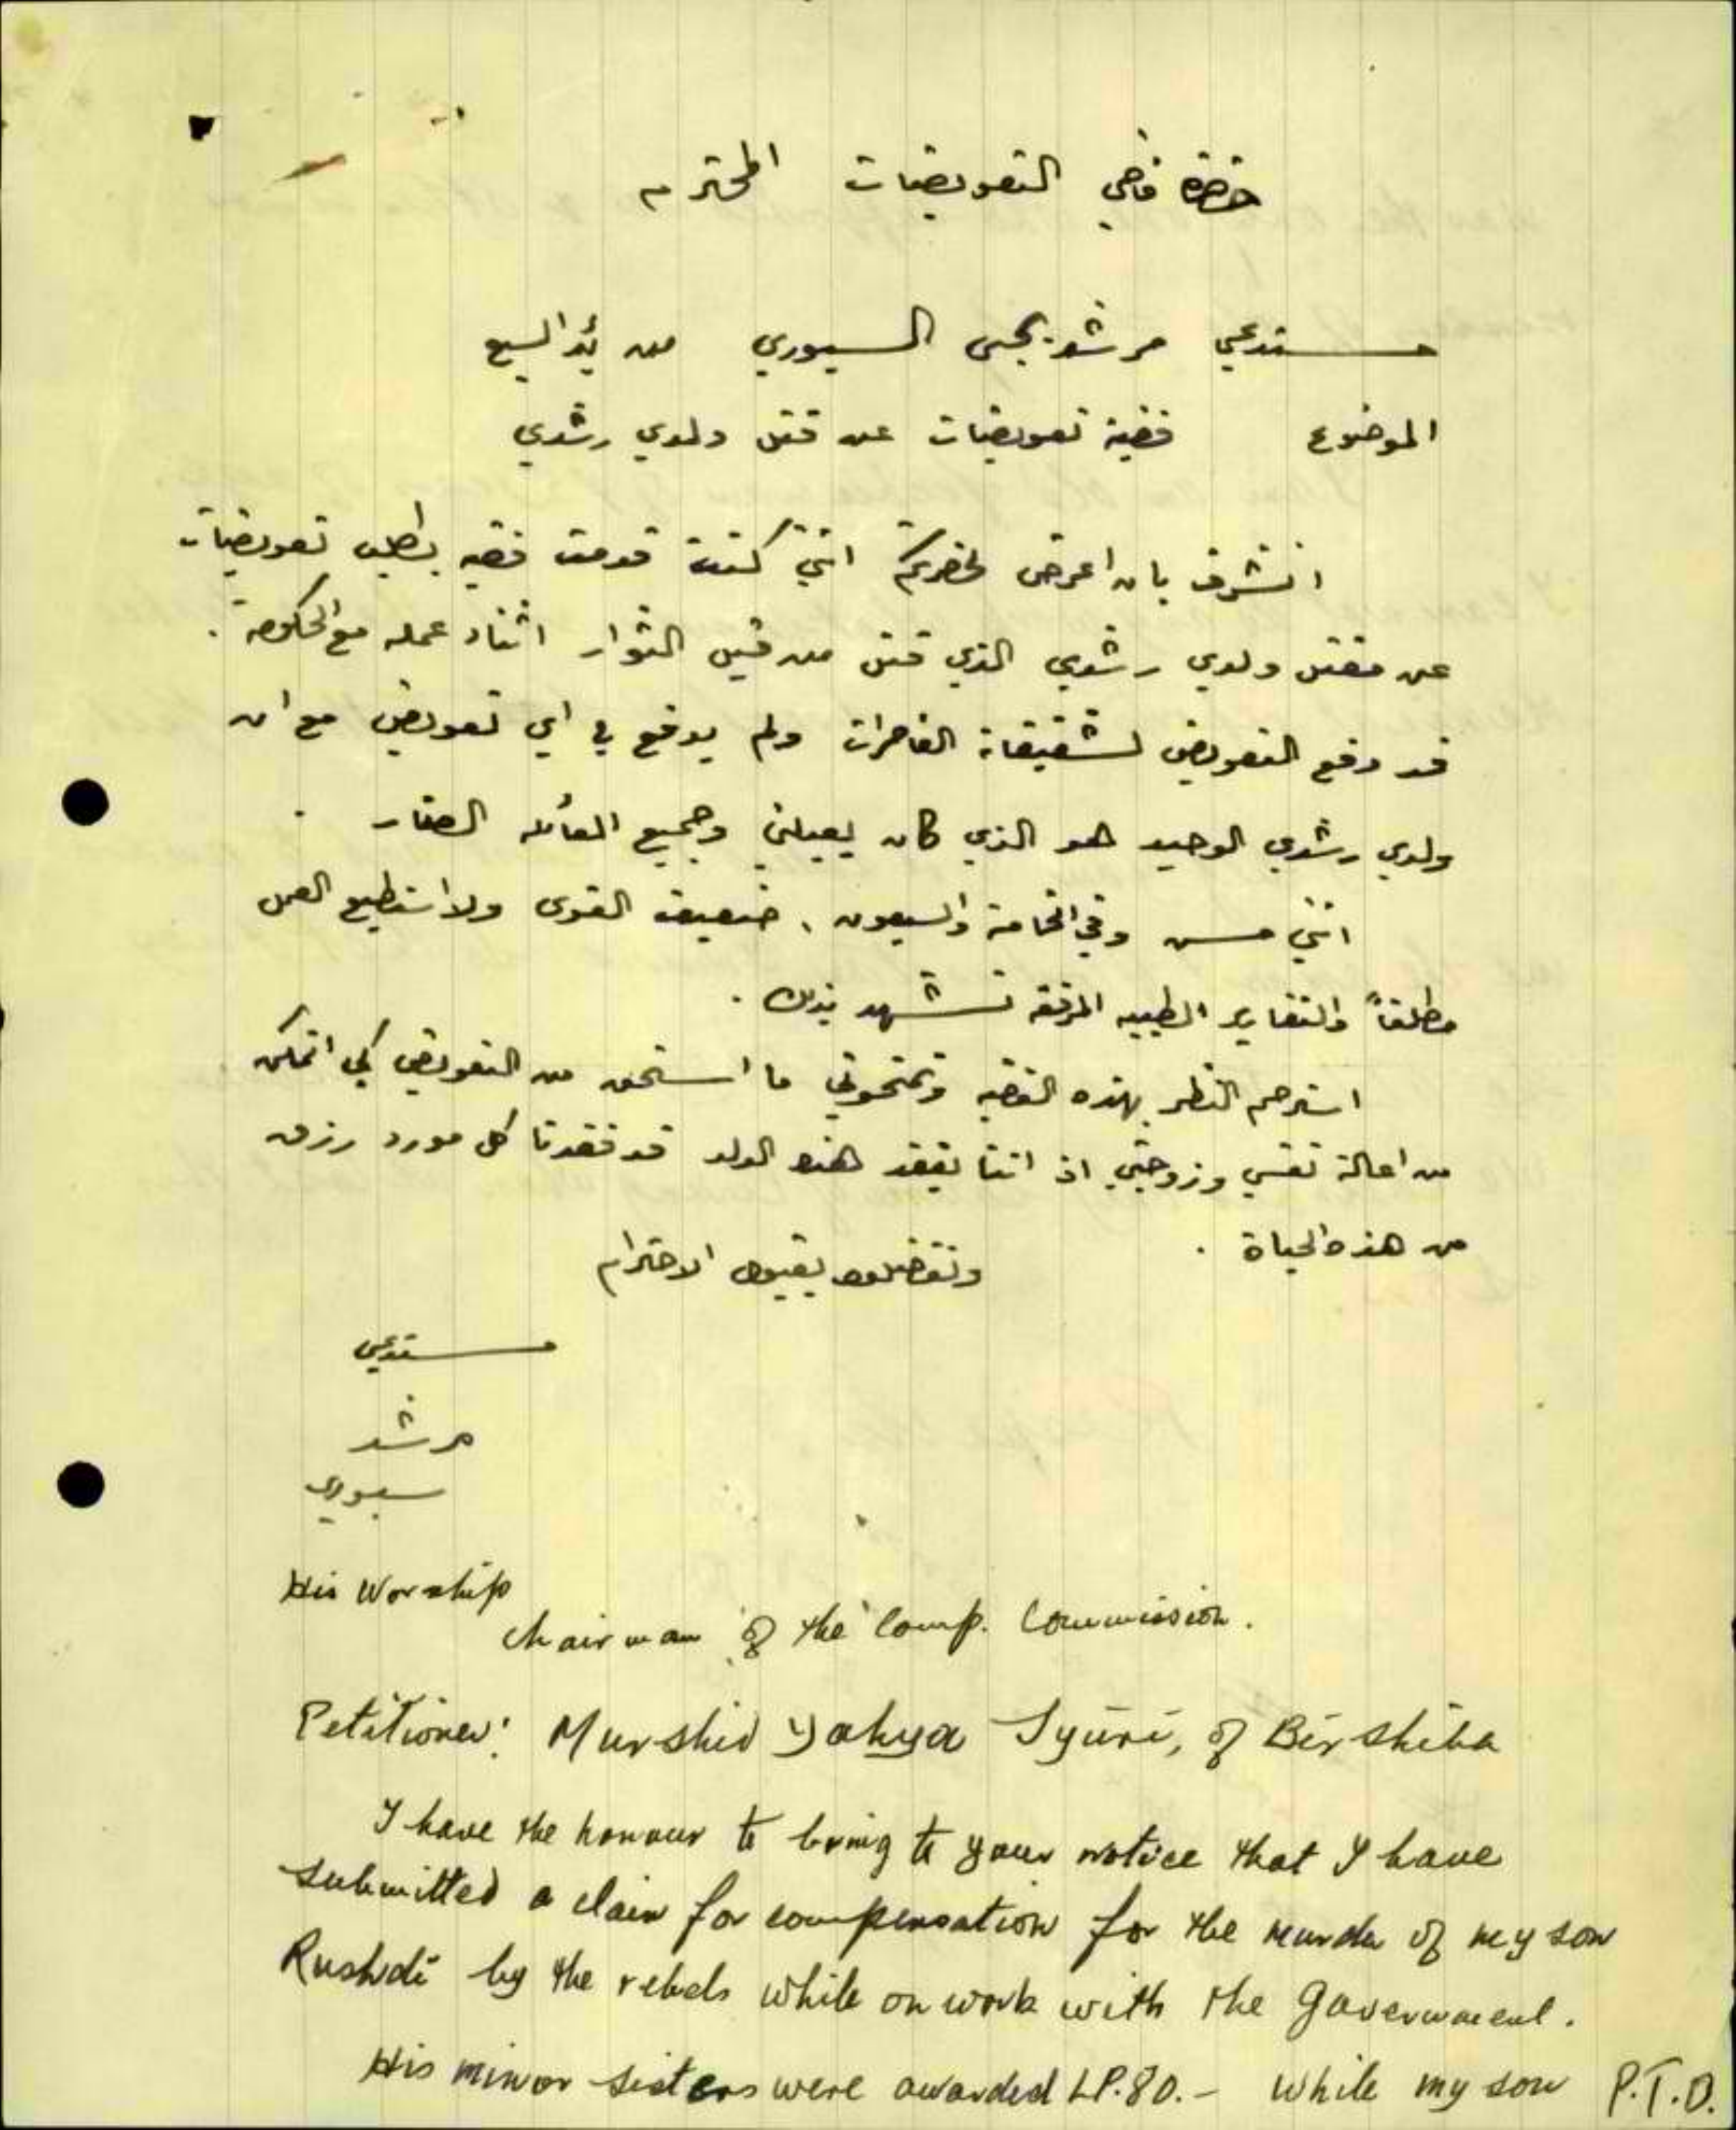 حضرة قاضي التعويضات المحترم
مستدعي مرشد يحيى السيوري من بئر السبع
الموضوع قضية تعويضات عن قتل ولدي رشدي
اتشرف بان اعرض لحضرتكم انني كنت قدمت قضيه بطلب تعويضات
عن مقتل ولدي رشدي الذي قتل من قبل الثوار اثناء عمله مع الحكومة .
قد دفع التعويض لشقيقاته القاصرات ولم يدفع لي اي تعويض مع ان
ولدي رشدي الوحيد هو الذي كان يعيلني وجميع العائله الصغار .
انني مسن وفي الخامسة والسبعون ، ضعيف القوى ولا استطيع العمل
مطلقاً والتقارير الطبيه المرفقه تشهد بذلك .
استرحم النظر بهذه القضيه وتمنحوني ما استحق من التعويض كي اتمكن
من اعالة نفسي وزوجتي اذ اننا بفقد هذا الولد قد فقدنا كل مورد رزق
من هذه الحياة .
وتفضلوا بقبول الاحترام
مستدعي
مرشد
سيوري
His Worship
Chairman of the Comp. Commission.
Petitioner: Murshid Yahya Syuri, of Birshiba
I have the honour to bring to your notice that I have
submitted a claim for compensation for the murder of my son
Rushdi by the rebels while on work with the Government.
His minor sisters were awarded LP.80.- while my son P.T.O.